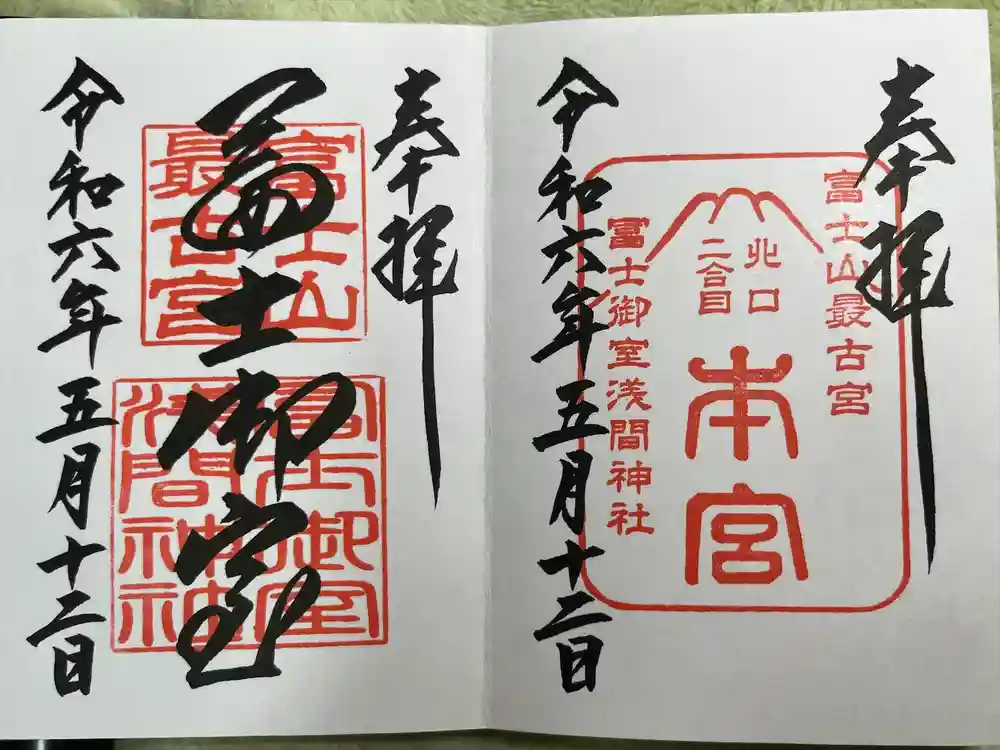 奉拝
富士山最古宮
北口
二合目
本宮
冨士御室浅間神社
令和六年五月十二日
奉拝
富士山
最古宮
冨士御室
冨士御室
浅間神社
令和六年五月十二日